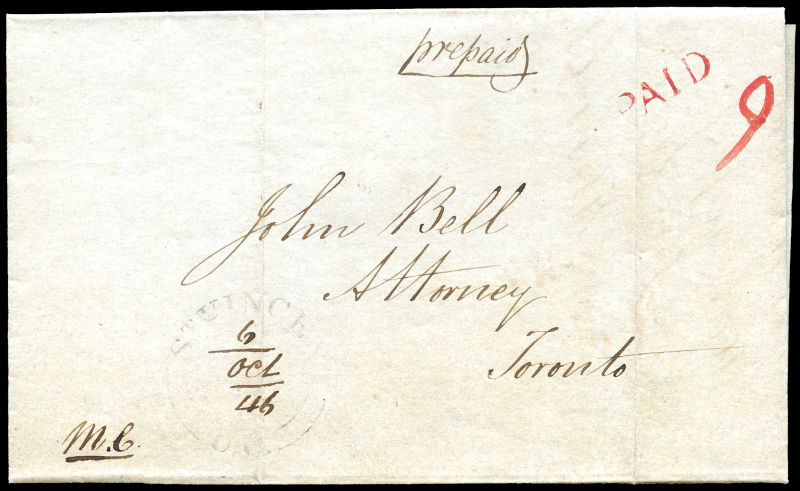 prepaid
PAID
9
John Bell
Attorney
Toronto
ST VINCE
6
Oct
46
M.C.